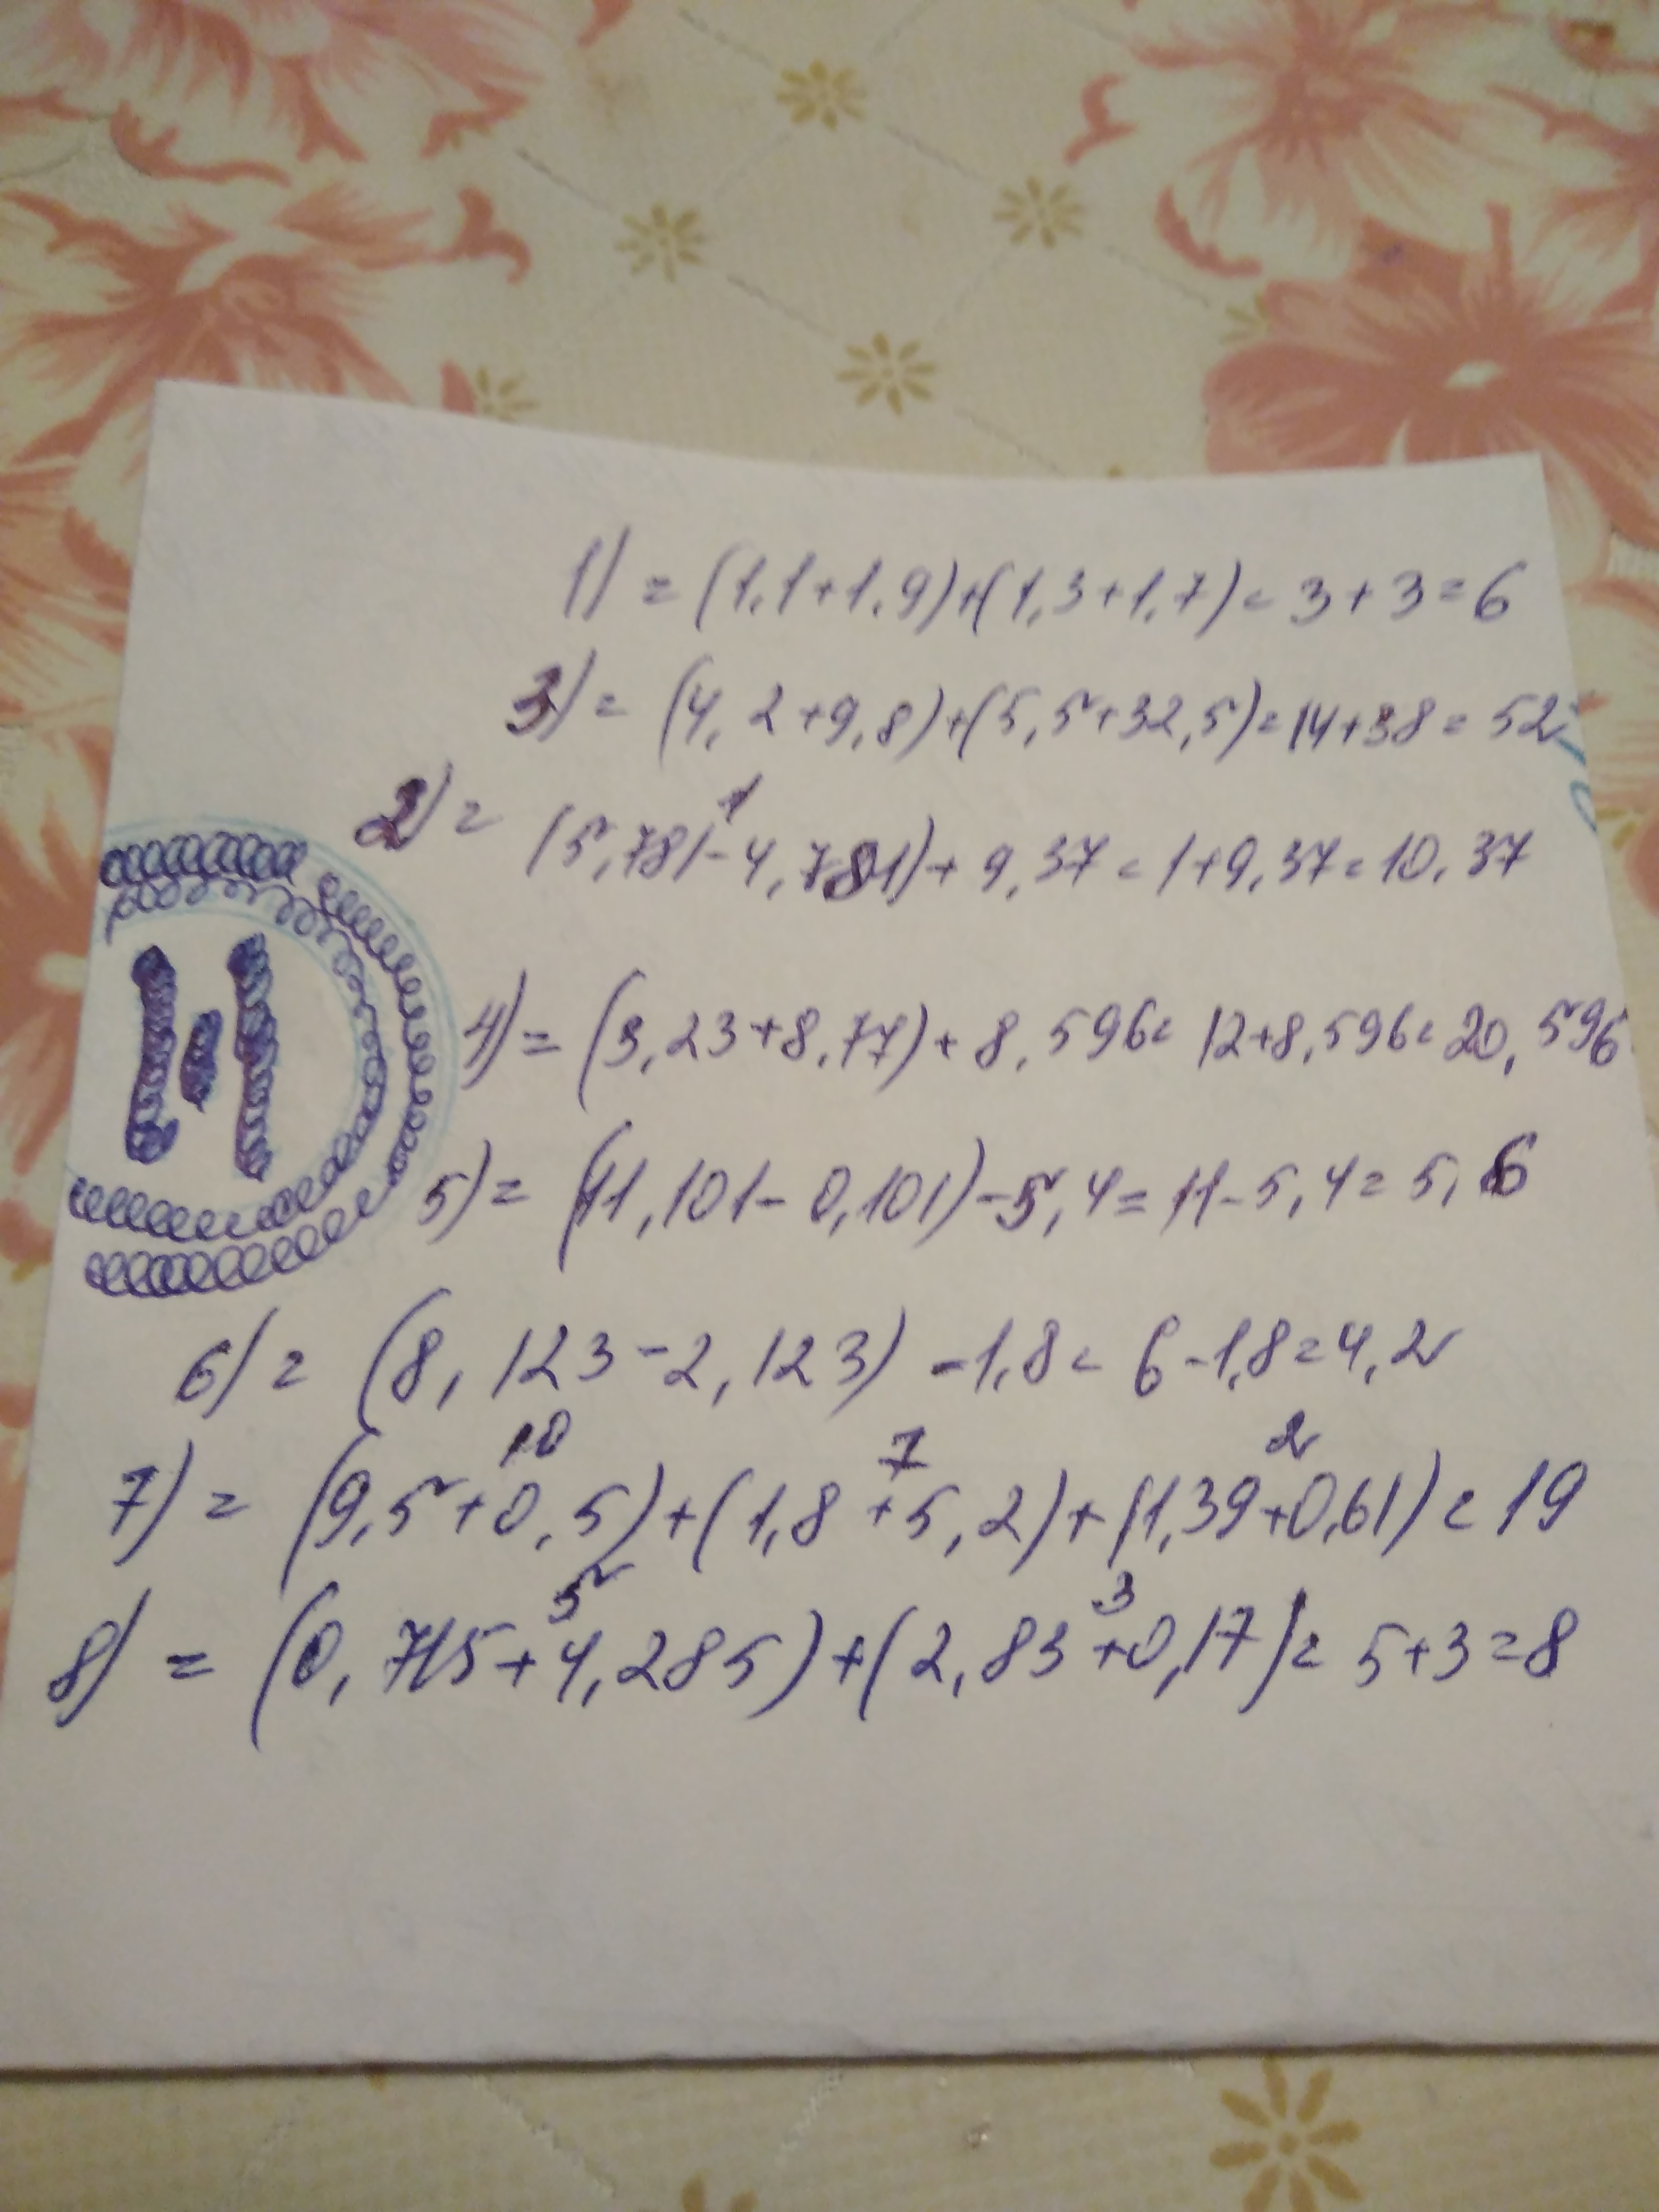 1) = (1,1+1,9)+(1,3+1,7)= 3+3=6
3) = (4,2+9,8)+(5,5+32,5)=14+38=52
1
2) = (5,781-4,781)+9,37=1+9,37=10,37
4) = (3,23+8,77)+8,596=12+8,596=20,596
5) = (11,101-0,101)-5,4=11-5,4=5,6
6) = (8,123-2,123)-1,8=6-1,8=4,2
10 7 2
7) = (9,5+0,5)+(1,8+5,2)+(1,39+0,61)=19
5 3
8) = (0,715+4,285)+(2,83+0,17)=5+3=8